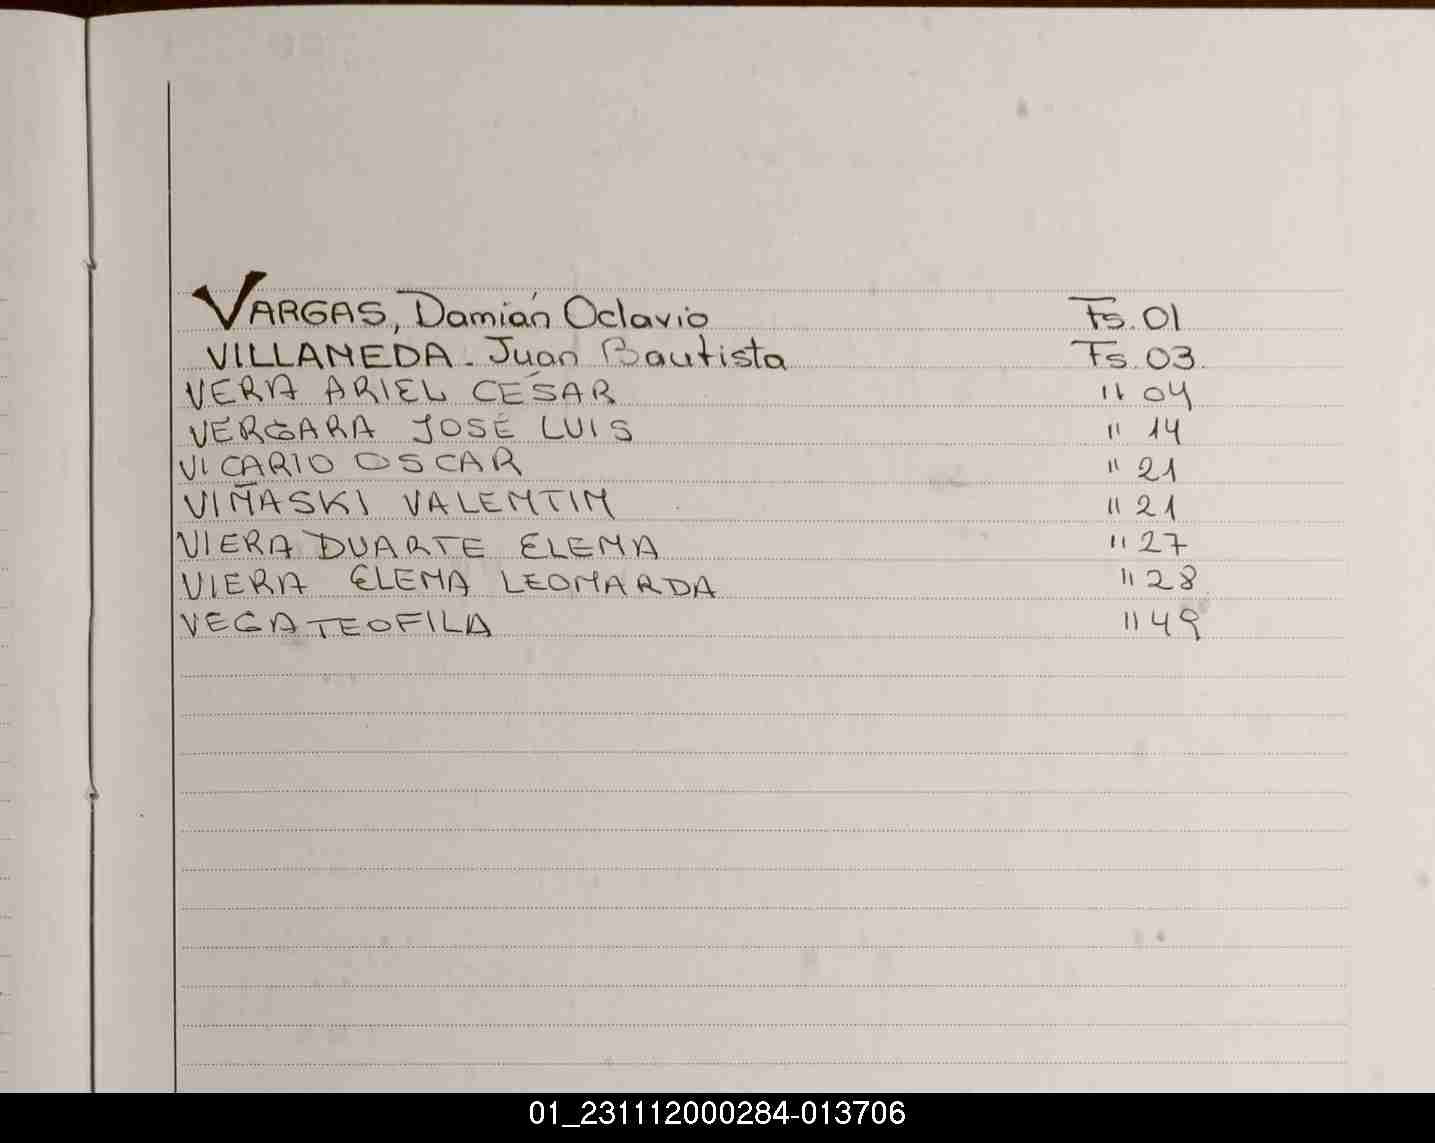 VARGAS, Damián Octavio Fs. 01
VILLANEDA - Juan Bautista Fs. 03.
VERA ARIEL CÉSAR " 04
VERGARA JOSÉ LUIS " 14
VICARIO OSCAR " 21
VIÑASKI VALENTIN " 21
VIERA DUARTE ELENA " 27
VIERA ELENA LEONARDA " 28
VEGA TEOFILA " 49
01_231112000284-013706